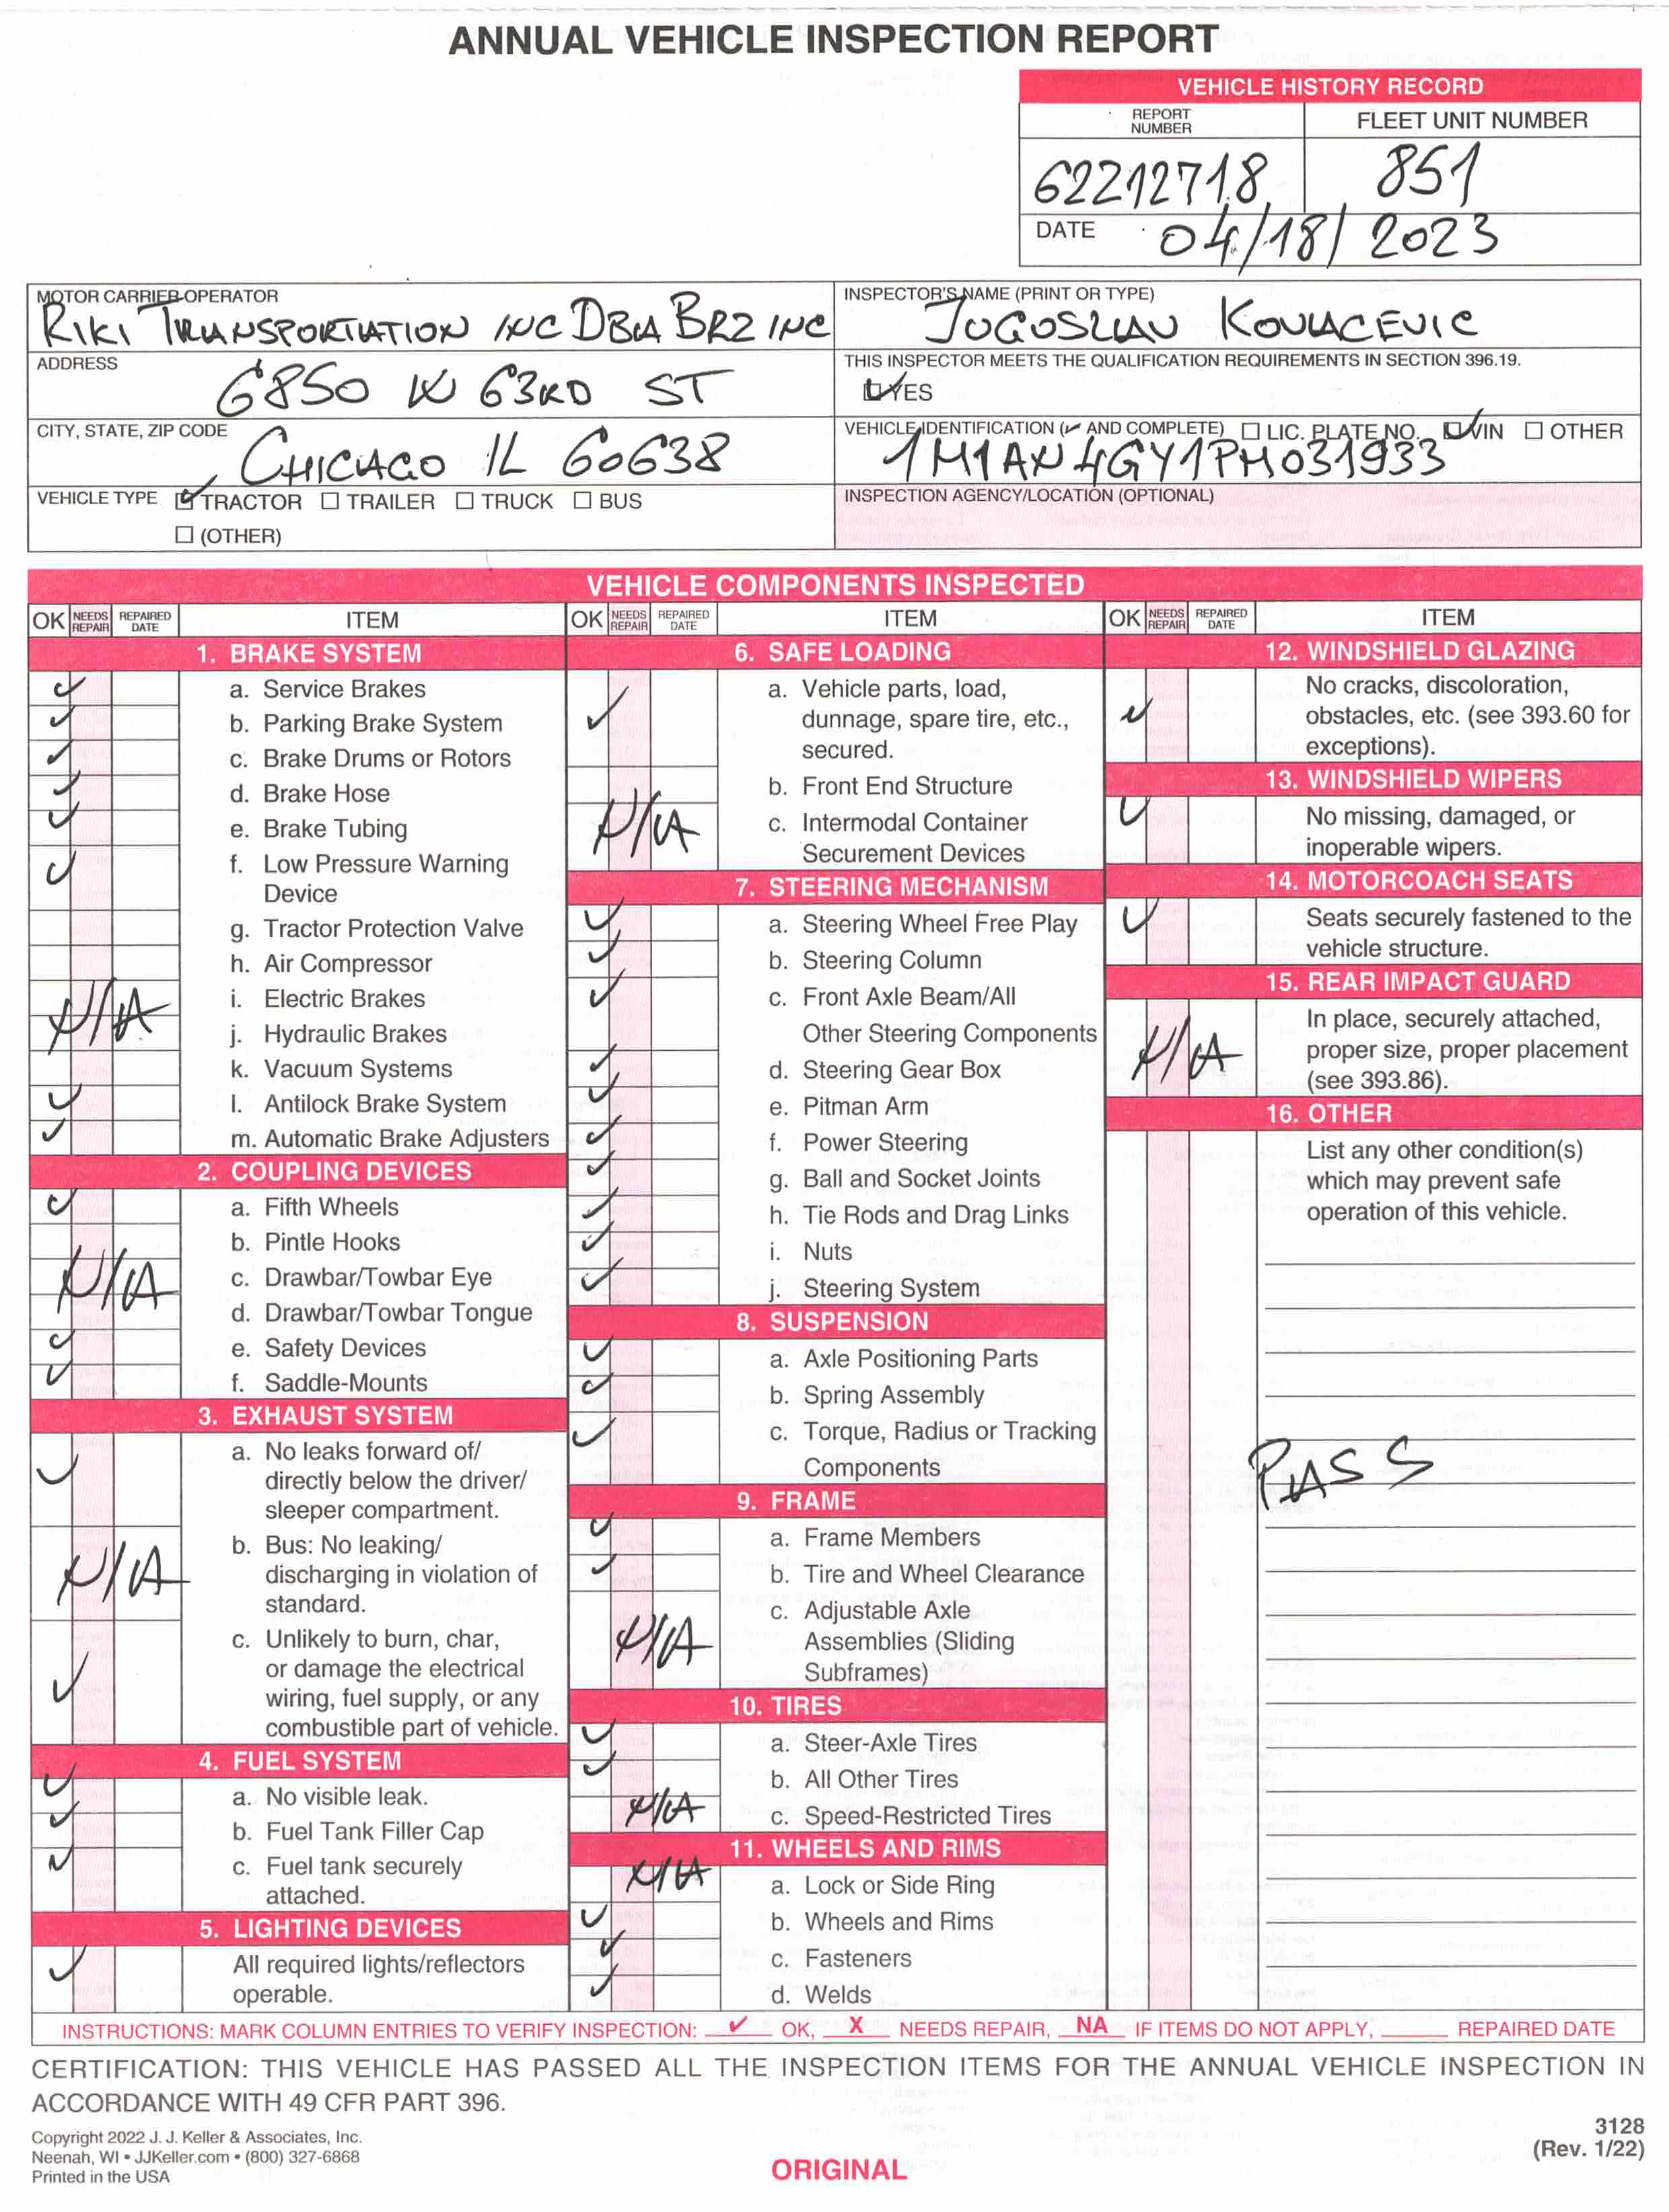 ANNUAL VEHICLE INSPECTION REPORT
VEHICLE HISTORY RECORD
REPORT NUMBER
FLEET UNIT NUMBER
62212718
851
DATE 04/18/2023
MOTOR CARRIER OPERATOR
RIKI TRANSPORTATION INC DBA BRZ INC
INSPECTOR'S NAME (PRINT OR TYPE)
JUGOSLAV KOVACEVIC
ADDRESS
6850 W 63RD ST
THIS INSPECTOR MEETS THE QUALIFICATION REQUIREMENTS IN SECTION 396.19.
☑ YES
CITY, STATE, ZIP CODE
CHICAGO IL 60638
VEHICLE IDENTIFICATION (✓ AND COMPLETE) ☐ LIC. PLATE NO. ☑ VIN ☐ OTHER
1M1AN4GY1PM031933
VEHICLE TYPE ☑ TRACTOR ☐ TRAILER ☐ TRUCK ☐ BUS
☐ (OTHER)
INSPECTION AGENCY/LOCATION (OPTIONAL)
VEHICLE COMPONENTS INSPECTED
OK NEEDS REPAIR REPAIRED DATE ITEM
1. BRAKE SYSTEM
✓ a. Service Brakes
✓ b. Parking Brake System
✓ c. Brake Drums or Rotors
✓ d. Brake Hose
✓ e. Brake Tubing
✓ f. Low Pressure Warning
Device
g. Tractor Protection Valve
h. Air Compressor
i. Electric Brakes
N/A j. Hydraulic Brakes
k. Vacuum Systems
✓ l. Antilock Brake System
✓ m. Automatic Brake Adjusters
2. COUPLING DEVICES
✓ a. Fifth Wheels
b. Pintle Hooks
N/A c. Drawbar/Towbar Eye
d. Drawbar/Towbar Tongue
✓ e. Safety Devices
✓ f. Saddle-Mounts
3. EXHAUST SYSTEM
✓ a. No leaks forward of/
directly below the driver/
sleeper compartment.
N/A b. Bus: No leaking/
discharging in violation of
standard.
✓ c. Unlikely to burn, char,
or damage the electrical
wiring, fuel supply, or any
combustible part of vehicle.
4. FUEL SYSTEM
✓ a. No visible leak.
✓ b. Fuel Tank Filler Cap
✓ c. Fuel tank securely
attached.
5. LIGHTING DEVICES
✓ All required lights/reflectors
operable.
OK NEEDS REPAIR REPAIRED DATE ITEM
6. SAFE LOADING
✓ a. Vehicle parts, load,
dunnage, spare tire, etc.,
secured.
b. Front End Structure
N/A c. Intermodal Container
Securement Devices
7. STEERING MECHANISM
✓ a. Steering Wheel Free Play
✓ b. Steering Column
✓ c. Front Axle Beam/All
Other Steering Components
✓ d. Steering Gear Box
✓ e. Pitman Arm
✓ f. Power Steering
✓ g. Ball and Socket Joints
✓ h. Tie Rods and Drag Links
✓ i. Nuts
✓ j. Steering System
8. SUSPENSION
✓ a. Axle Positioning Parts
✓ b. Spring Assembly
✓ c. Torque, Radius or Tracking
Components
9. FRAME
✓ a. Frame Members
✓ b. Tire and Wheel Clearance
N/A c. Adjustable Axle
Assemblies (Sliding
Subframes)
10. TIRES
✓ a. Steer-Axle Tires
✓ b. All Other Tires
N/A c. Speed-Restricted Tires
11. WHEELS AND RIMS
N/A a. Lock or Side Ring
✓ b. Wheels and Rims
✓ c. Fasteners
✓ d. Welds
OK NEEDS REPAIR REPAIRED DATE ITEM
12. WINDSHIELD GLAZING
✓ No cracks, discoloration,
obstacles, etc. (see 393.60 for
exceptions).
13. WINDSHIELD WIPERS
✓ No missing, damaged, or
inoperable wipers.
14. MOTORCOACH SEATS
✓ Seats securely fastened to the
vehicle structure.
15. REAR IMPACT GUARD
N/A In place, securely attached,
proper size, proper placement
(see 393.86).
16. OTHER
List any other condition(s)
which may prevent safe
operation of this vehicle.
PASS
INSTRUCTIONS: MARK COLUMN ENTRIES TO VERIFY INSPECTION: ✓ OK, X NEEDS REPAIR, NA IF ITEMS DO NOT APPLY, ____ REPAIRED DATE
CERTIFICATION: THIS VEHICLE HAS PASSED ALL THE INSPECTION ITEMS FOR THE ANNUAL VEHICLE INSPECTION IN
ACCORDANCE WITH 49 CFR PART 396.
Copyright 2022 J. J. Keller & Associates, Inc.
Neenah, WI • JJKeller.com • (800) 327-6868
Printed in the USA
ORIGINAL
3128
(Rev. 1/22)